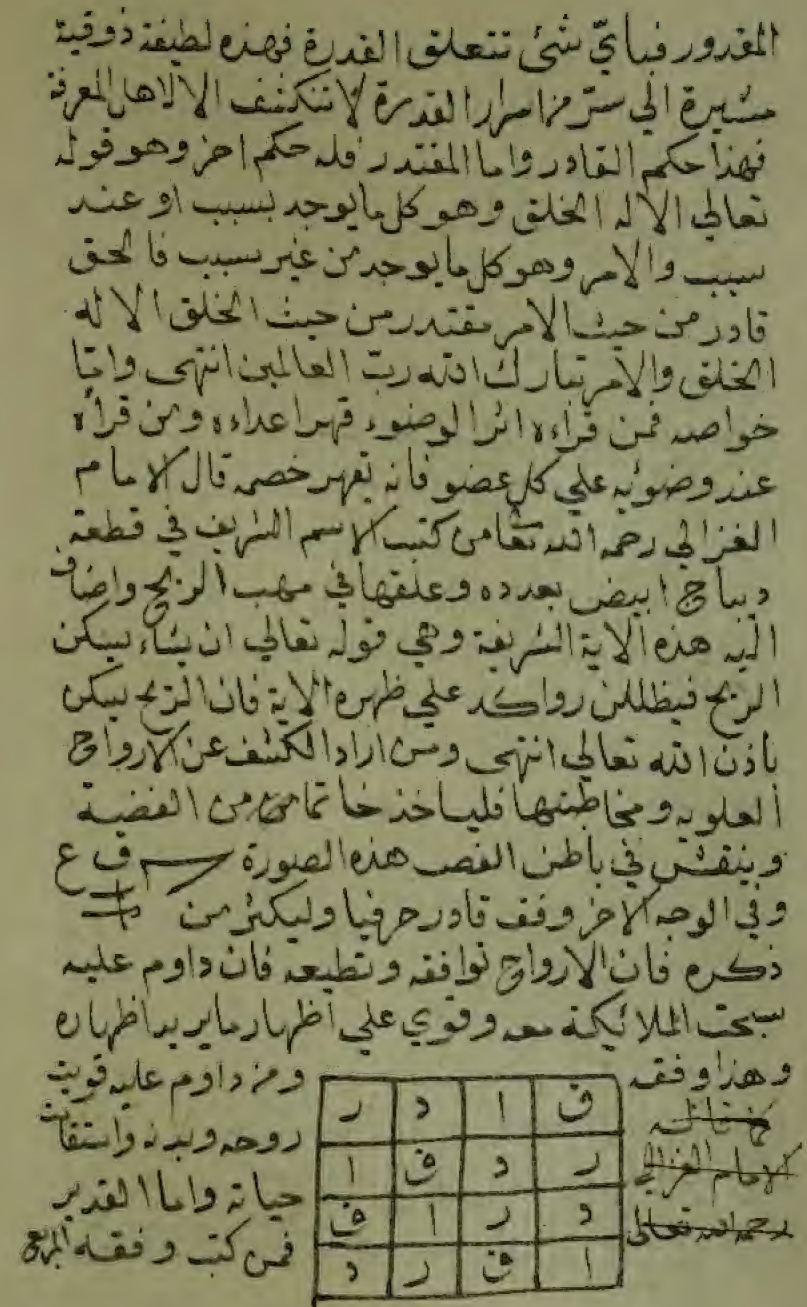 المقدور فبايّ شئ تتعلق القدرة فهذه لطيفة ذوقية
مشيرة الي سرّ من اسرار القدرة لا تنكشف الا لاهل المعرفة
فهذا حكم القادر واما المقتدر فله حكم اخر وهو قوله
تعالي الا له الخلق وهو كل ما يوجد بسبب او عند
سبب والامر وهو كل ما يوجد من غير سبب فالحق
قادر من حيث الامر مقتدر من حيث الخلق الا له
الخلق والامر تبارك الله ربّ العالمين انتهى وامّا
خواصه فمن قراءه اثر الوضوء قهر اعداءه ومن قرأه
عند وضوئه علي كل عضو فانه يقهر خصمه قال الامام
الغزالي رحمه الله تعا من كتب الاسم الشريف في قطعة
ديباج ابيض بعدده وعلقها في مهب الريح واضاف
اليه هذه الاية الشريفة وهي قوله تعالي ان يشاء يسكن
الريح فيظللن رواكد علي ظهره الاية فان الريح يسكن
باذن الله تعالي انتهى ومن اراد الكشف عن الارواح
العلويه ومخاطبتها فلياخذ خاتما من الفضة
وينقش في باطن الفص هذه الصورة ف ع
وفي الوجه الاخر وفق قادر حرفيا وليكثر من
ذكره فان الارواح توافقه وتطيعه فان داوم عليه
سبحت الملائيكة معه وقوي علي اظهار ما يريد اظهاره
وهذا وفقه
كما قاله
الامام الغزالي
رحمه الله تعالى
ق ا د ر
ر د ق ا
د ر ا ق
ا ق ر د
ومن داوم عليه قويت
روحه وبدنه واستقامت
حياته واما القدير
فمن كتب وفقه المربع